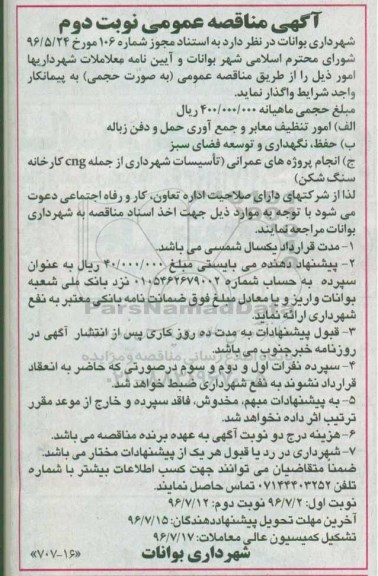 آگهی مناقصه عمومی نوبت دوم
شهرداری بوانات در نظر دارد به استناد مجوز شماره ۱۰۶ مورخ ۹۶/۵/۲۴
شورای محترم اسلامی شهر بوانات و آیین نامه معاملات شهرداریها
امور ذیل را از طریق مناقصه عمومی (به صورت حجمی) به پیمانکار
واجد شرایط واگذار نماید.
مبلغ حجمی ماهیانه ۴۰۰/۰۰۰/۰۰۰ ریال
الف) امور تنظیف معابر و جمع آوری حمل و دفن زباله
ب) حفظ، نگهداری و توسعه فضای سبز
ج) انجام پروژه های عمرانی (تأسیسات شهرداری از جمله cng کارخانه
سنگ شکن)
لذا از شرکتهای دارای صلاحیت اداره تعاون، کار و رفاه اجتماعی دعوت
می شود با توجه به موارد ذیل جهت اخذ اسناد مناقصه به شهرداری
بوانات مراجعه نمایند.
۱- مدت قرارداد یکسال شمسی می باشد.
۲- پیشنهاد دهنده می بایستی مبلغ ۴۰/۰۰۰/۰۰۰ ریال به عنوان
سپرده به حساب شماره ۰۱۰۵۳۶۲۶۷۹۰۰۲ نزد بانک ملی شعبه
بوانات واریز و یا معادل مبلغ فوق ضمانت نامه بانکی معتبر به نفع
شهرداری ارائه نماید.
۳- قبول پیشنهادات به مدت ده روز کاری پس از انتشار آگهی در
روزنامه خبرجنوب می باشد.
۴- سپرده نفرات اول و دوم و سوم درصورتی که حاضر به انعقاد
قرارداد نشوند به نفع شهرداری ضبط خواهد شد.
۵- به پیشنهادات مبهم، مخدوش، فاقد سپرده و خارج از موعد مقرر
ترتیب اثر داده نخواهد شد.
۶- هزینه درج دو نوبت آگهی به عهده برنده مناقصه می باشد.
۷- شهرداری در رد یا قبول هر یک از پیشنهادات مختار می باشد.
ضمنا متقاضیان می توانند جهت کسب اطلاعات بیشتر با شماره
تلفن ۰۷۱۴۴۴۰۳۲۵۲ تماس حاصل نمایند.
نوبت اول: ۹۶/۷/۲ نوبت دوم: ۹۶/۷/۱۲
آخرین مهلت تحویل پیشنهاددهندگان: ۹۶/۷/۱۵
تشکیل کمیسیون عالی معاملات: ۹۶/۷/۱۷
شهرداری بوانات
«۷۰۷-۱۶»
ParsNamadData